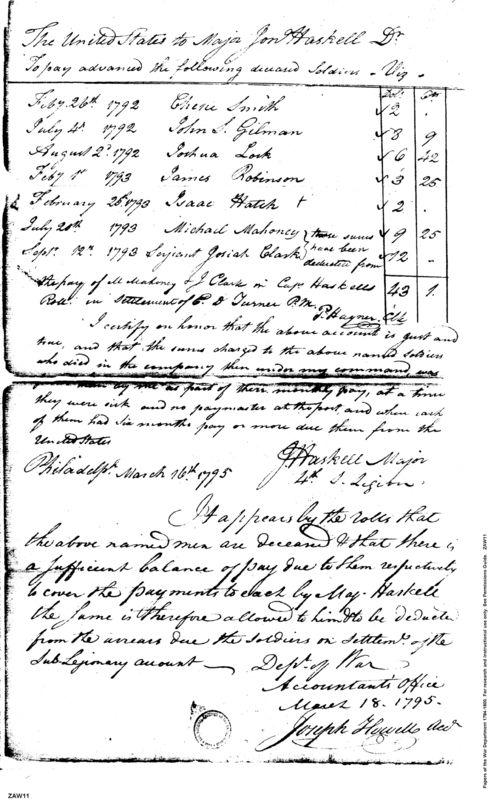 The United States to Major Jonn Haskell Dr
To pay advanced the following deceased Soldiers - Viz -
Dols Cts
Feby. 26th 1792 Chene Smith 2 .
July 4th 1792 John S. Gilman 8 9
August 2d. 1792 Joshua Lock 6 42
Feby 1st 1793 James Robinson 3 25
February 25, 1793 Isaac Hatch 2 .
July 20th 1793 Michael Mahoney 9 25
Septr. 12th. 1793 Serjeant Josiah Clark 12 -
these sums
have been
deducted from
the pay of M Mahoney & J Clark in Capt Haskells 43 1.
Roll in Settlement of E D Turner P.M.
P. Hagner. Clk
I certify on honor that the above account is just and
true, and that the sums charged to the above named soldiers
who died in the company then under my command, was
by me as part of their monthly pay, at a time
they were sick and no paymaster at the post and when each
of them had Six months pay or more due them from the
United States
Philadelpa. March 16th. 1795
JHaskell Major
4th S. Legion.
It appears by the rolls that
the above named men are deceased & that there is
a sufficient balance of pay due to them respectively
to cover the payments to each by Maj. Haskell
the same is therefore allowed to him & to be deducted
from the arrears due the soldiers on Settlemt. of the
Sub Legionary account —
Dept. of War
Accountants Office
March 18. 1795.
Joseph Howell Acct
ZAW11
Papers of the War Department 1784-1800. For research and instructional use only. See Permissions Guide. ZAW11